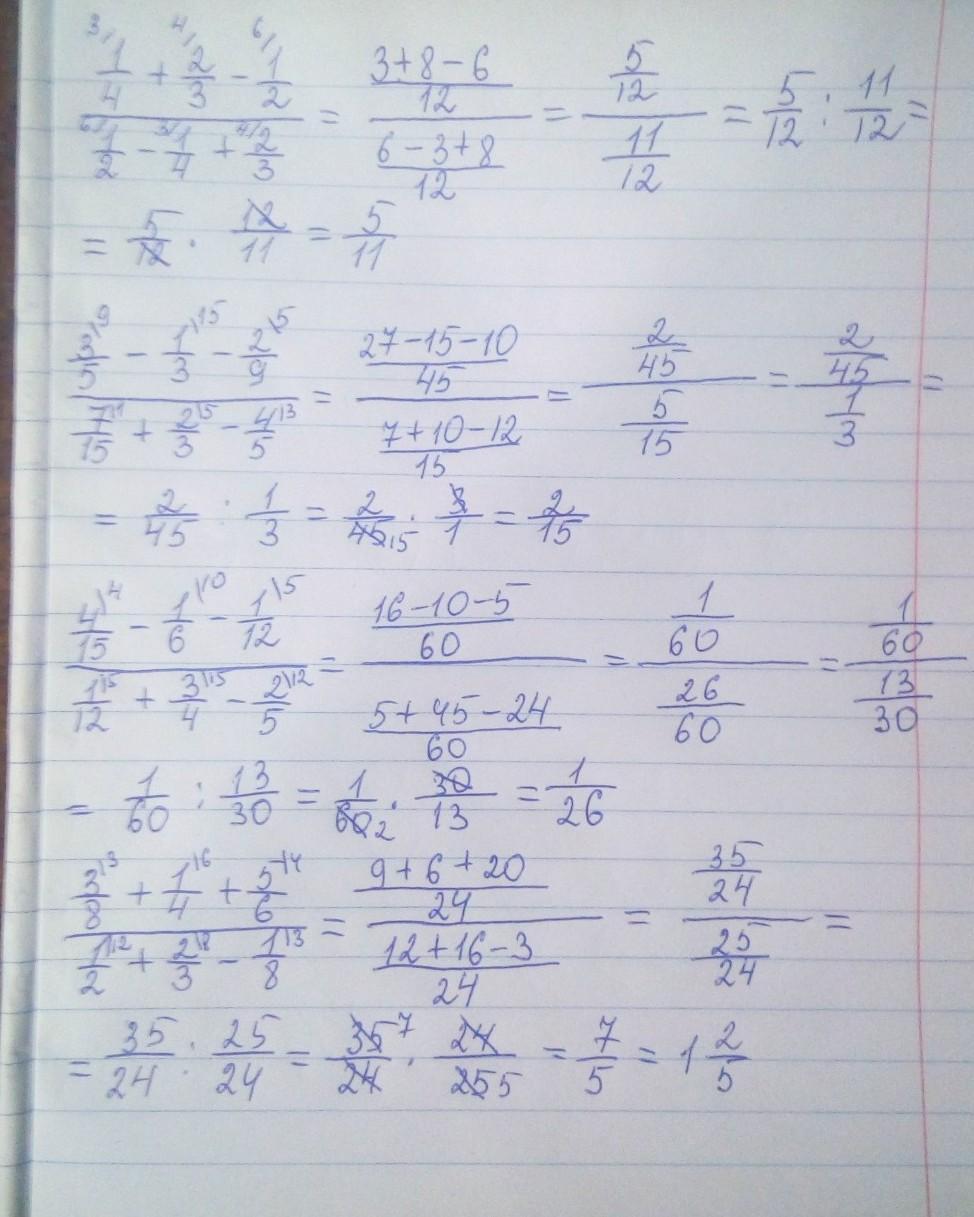 (3/ 1/4 + 4/ 2/3 - 6/ 1/2) / (6/ 1/2 - 3/ 1/4 + 4/ 2/3) = ((3+8-6)/12) / ((6-3+8)/12) = (5/12) / (11/12) = 5/12 : 11/12 =
= 5/12 · 12/11 = 5/11
(3/5 \9 - 1/3 \15 - 2/9 \5) / (7/15 \1 + 2/3 \5 - 4/5 \3) = ((27-15-10)/45) / ((7+10-12)/15) = (2/45) / (5/15) = (2/45) / (1/3) =
= 2/45 : 1/3 = 2/45 15 · 3/1 = 2/15
(4/15 \4 - 1/6 \10 - 1/12 \5) / (1/12 \5 + 3/4 \15 - 2/5 \12) = ((16-10-5)/60) / ((5+45-24)/60) = (1/60) / (26/60) = (1/60) / (13/30)
= 1/60 : 13/30 = 1/60 2 · 30/13 = 1/26
(3/8 \3 + 1/4 \6 + 5/6 \4) / (1/2 \12 + 2/3 \8 - 1/8 \3) = ((9+6+20)/24) / ((12+16-3)/24) = (35/24) / (25/24) =
= 35/24 : 25/24 = 35 7/24 · 24/25 5 = 7/5 = 1 2/5